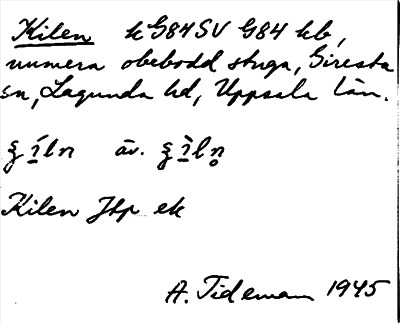 Kilen k G84SV G84 kb,
numera obebodd stuga, Giresta
sn, Lagunda hd, Uppsala län.
äv.
Kilen Jbp ek
A. Tideman 1945